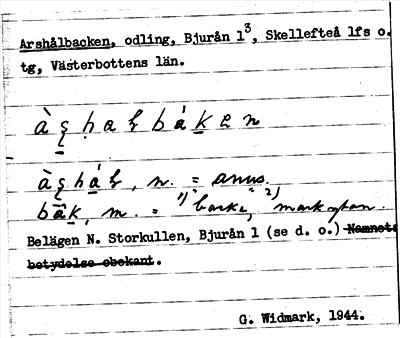 Arshålbacken, odling, Bjurån 1³, Skellefteå lfs o.
tg, Västerbottens län.
àʂhaɫbáken
àʂháɫ, n. = anus.
bàk, m. = 1) backe, 2) mark ytan.
Belägen N. Storkullen, Bjurån 1 (se d. o.) Namnets
betydelse obekant.
G. Widmark, 1944.